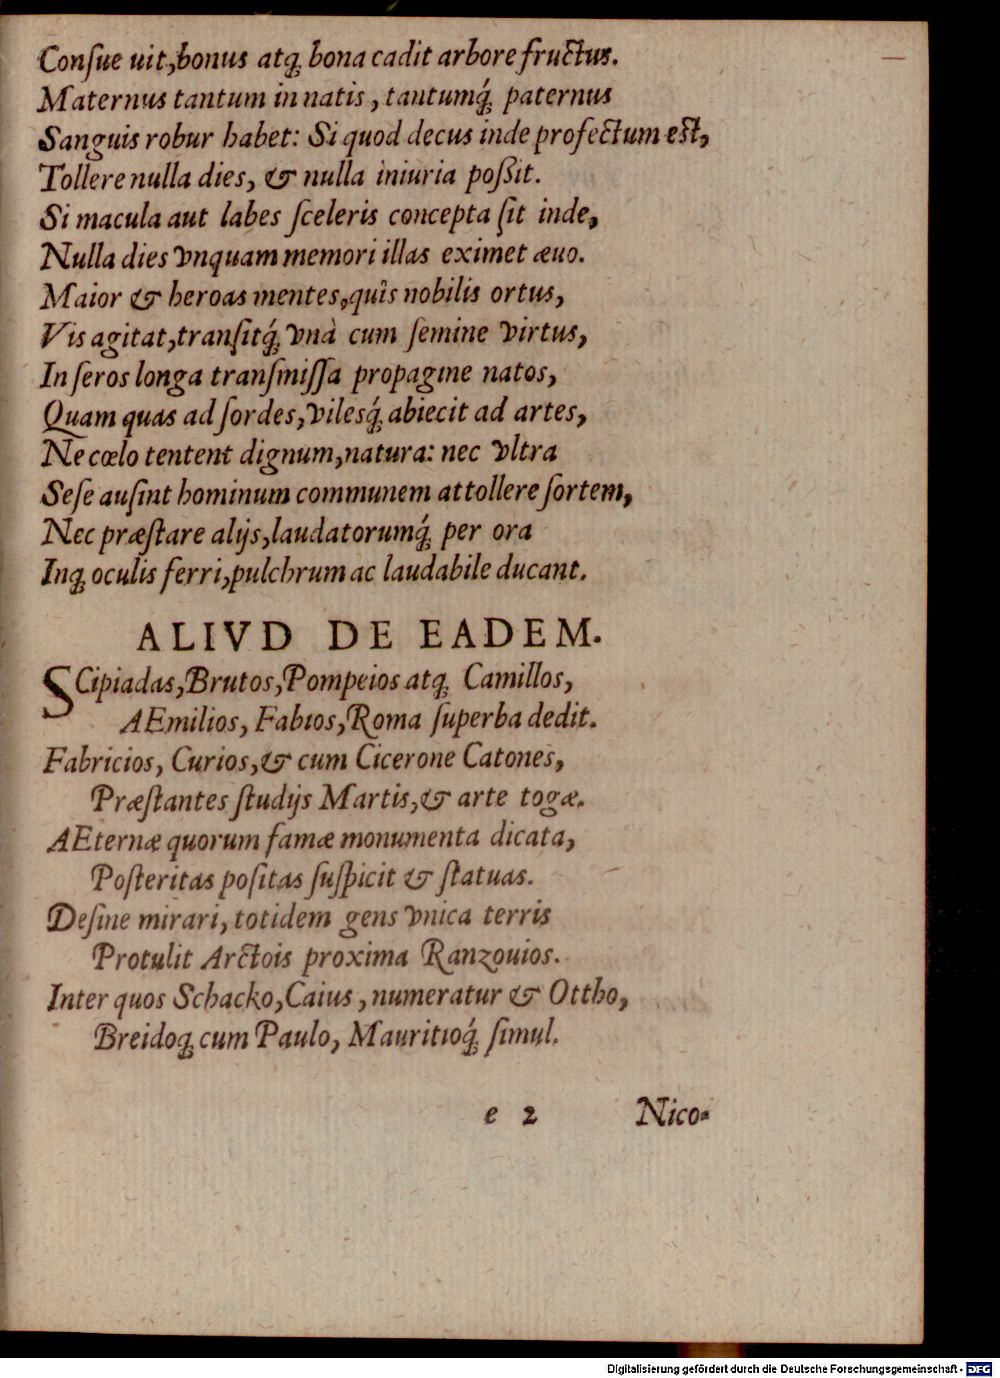 Conſue uit, bonus atq́; bona cadit arbore fructus.
Maternus tantum in natis, tantumq́; paternus
Sanguis robur habet: Si quod decus inde profectum est,
Tollere nulla dies, & nulla iniuria poßit.
Si macula aut labes ſceleris concepta ſit inde,
Nulla dies vnquam memori illas eximet æuo.
Maior & heroas mentes, quîs nobilis ortus,
Vis agitat, tranſitq́; vnà cum ſemine virtus,
In ſeros longa tranſmiſſa propagine natos,
Quam quas ad ſordes, vilesq́; abiecit ad artes,
Ne cœlo tentent dignum, natura: nec vltra
Seſe auſint hominum communem attollere ſortem,
Nec præſtare alijs, laudatorumq́; per ora
Inq; oculis ferri, pulchrum ac laudabile ducant.
ALIVD DE EADEM.
SCipiadas, Brutos, Pompeios atq; Camillos,
AEmilios, Fabios, Roma ſuperba dedit.
Fabricios, Curios, & cum Cicerone Catones,
Præſtantes ſtudijs Martis, & arte togæ.
AEternæ quorum famæ monumenta dicata,
Poſteritas poſitas ſuſpicit & ſtatuas.
Deſine mirari, totidem gens vnica terris
Protulit Arctois proxima Ranzouios.
Inter quos Schacko, Caius, numeratur & Ottho,
Breidoq; cum Paulo, Mauritioq́; ſimul.
e 2 Nico-
Digitalisierung gefördert durch die Deutsche Forschungsgemeinschaft - DFG